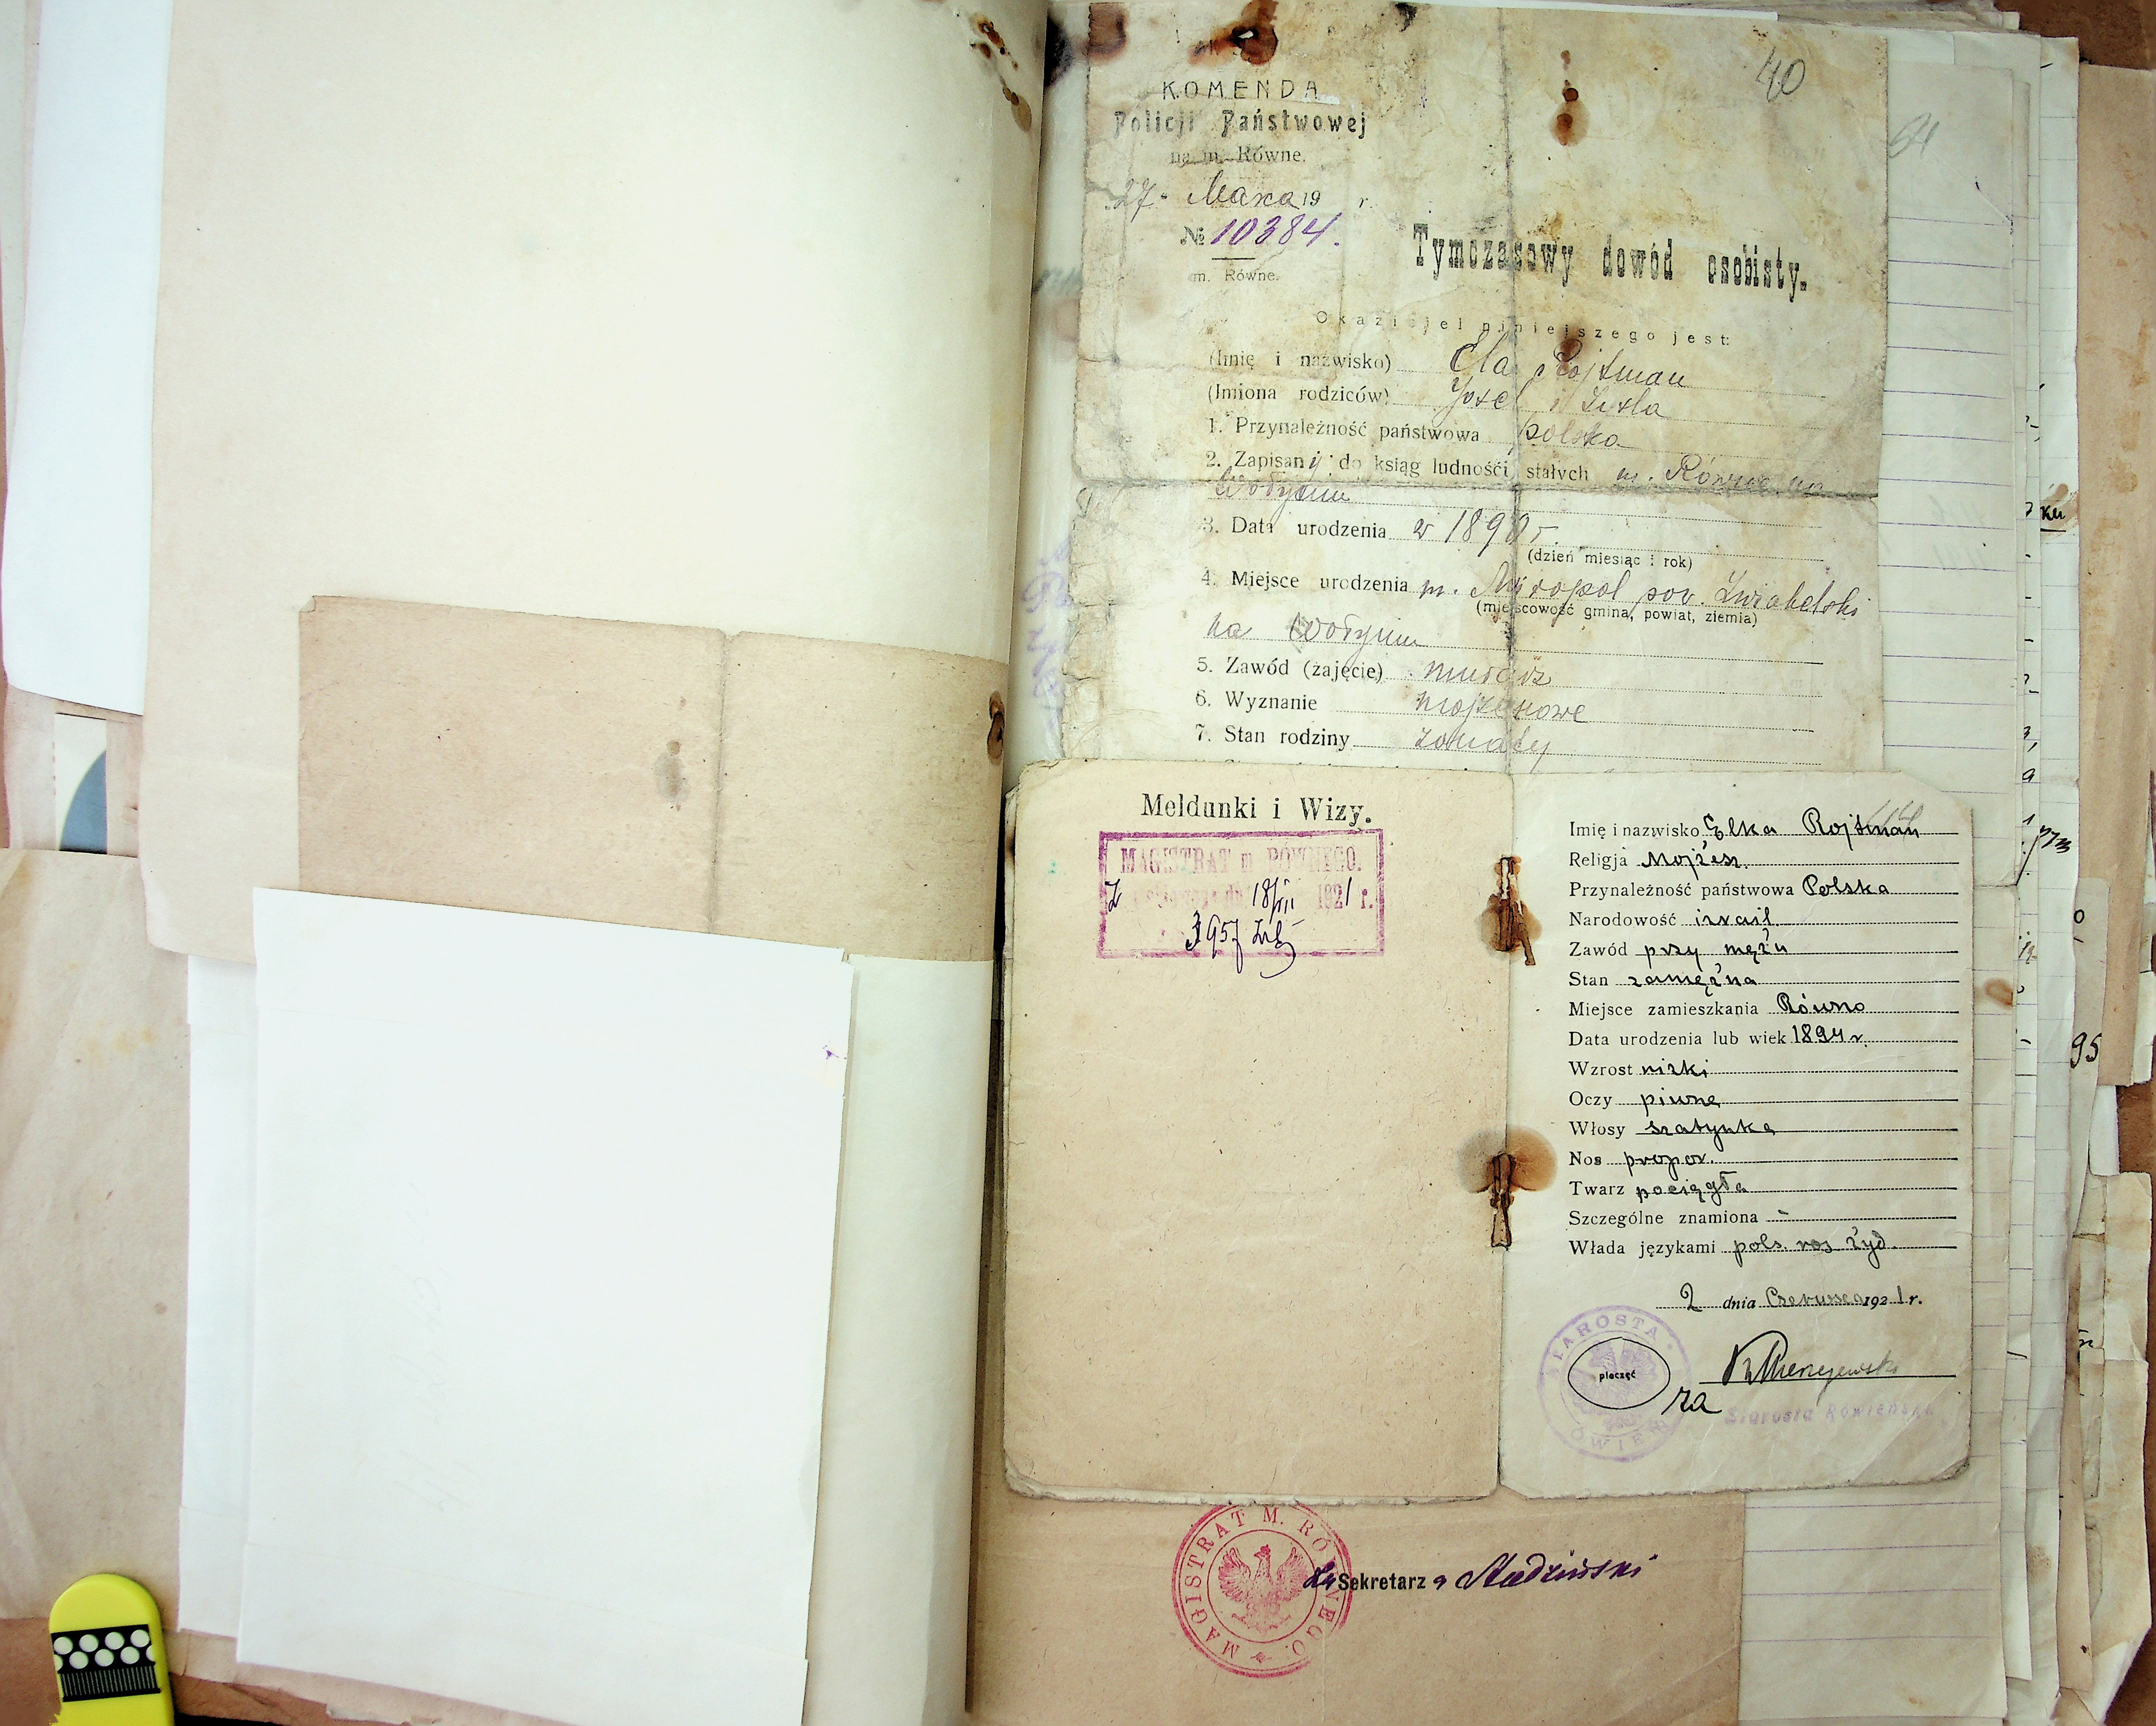 40
KOMENDA
Policji Państwowej
na m. Równe.
27 Marca 19 r.
№ 10384.
m. Równe.
Tymczasowy dowód osobisty.
Okaziciel niniejszego jest:
(Imię i nazwisko) Ela Rojtman
(Imiona rodziców) Josel i
1. Przynależność państwowa polska
2. Zapisany do ksiąg ludności stałych m. Równe na
Wołyniu
3. Data urodzenia w 1890 r.
(dzień miesiąc i rok)
4. Miejsce urodzenia m. Miropol pow. Zwiahelski
(miejscowość gmina, powiat, ziemia)
na Wołyniu
5. Zawód (zajęcie) murarz
6. Wyznanie mojżeszowe
7. Stan rodziny żonaty
Meldunki i Wizy.
MAGISTRAT m. RÓWNEGO.
18/VII 1921 r.
3957
Imię i nazwisko Elka Rojtman
Religja Mojżesz.
Przynależność państwowa Polska
Narodowość izrail.
Zawód przy mężu
Stan zamężna
Miejsce zamieszkania Równo
Data urodzenia lub wiek 1894 r.
Wzrost nizki
Oczy piwne
Włosy szatynka
Nos propor.
Twarz pociągła
Szczególne znamiona -
Włada językami pols. ros żyd.
2 dnia Czerwca 1921 r.
STAROSTA
pieczęć
za
Starosta Rówieński
MAGISTRAT M. RÓWNEGO.
Sekretarz
ku
95